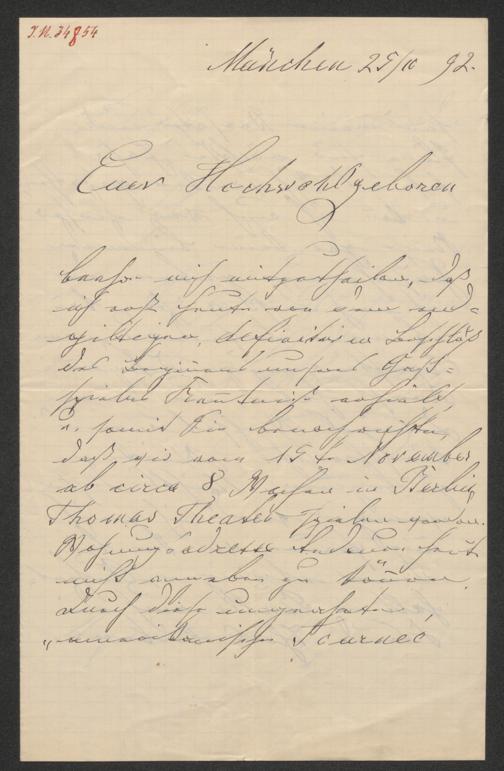 I.N. 34854
München 25/10 92.
Euer Hochwohlgeboren
beehre mich mitzutheilen, daß
ich erst heute von dem end=
giltigen, definitiven Beschluß
des unseres Gast=
spieles Kenntniß erhielt,
u. somit Sie
daß wir vom 15t November
ab circa 8 Wochen in Berlin
Thomas Theater spielen werden.
Wohnungsadresse heute
nicht angeben zu können.
Durch diese
"amerikanische Tournee